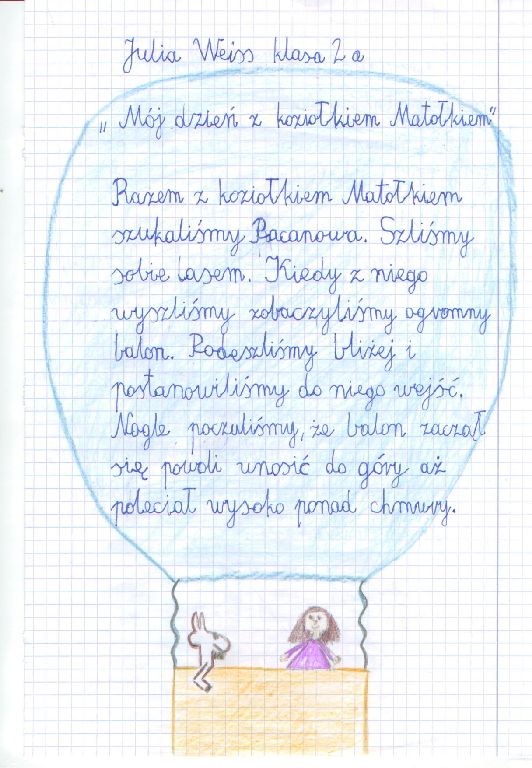 Julia Weiss klasa 2a
„Mój dzień z koziołkiem Matołkiem"
Razem z koziołkiem Matołkiem
szukaliśmy Pacanowa. Szliśmy
sobie lasem. Kiedy z niego
wyszliśmy zobaczyliśmy ogromny
balon. Podeszliśmy bliżej i
postanowiliśmy do niego wejść.
Nagle poczuliśmy, że balon zaczął
się powoli unosić do góry aż
poleciał wysoko ponad chmury.